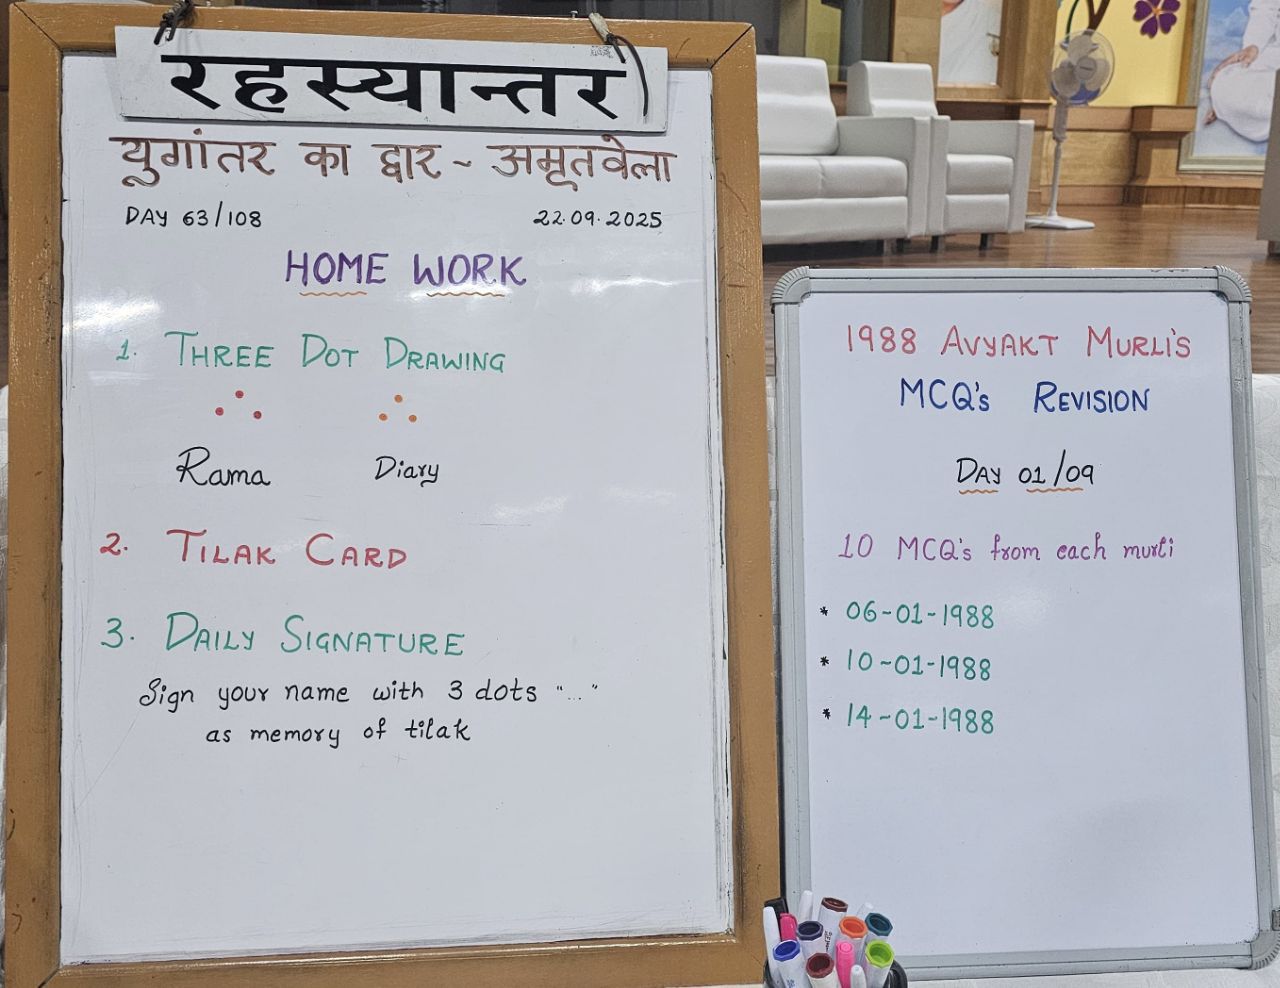 रहस्यान्तर
युगांतर का द्वार ~ अमृतवेला
DAY 63/108 22.09.2025
HOME WORK
1. THREE DOT DRAWING
Rama Diary
2. TILAK CARD
3. DAILY SIGNATURE
Sign your name with 3 dots "..."
as memory of tilak
1988 AVYAKT MURLI'S
MCQ's REVISION
DAY 01/09
10 MCQ's from each murli
* 06-01-1988
* 10-01-1988
* 14-01-1988